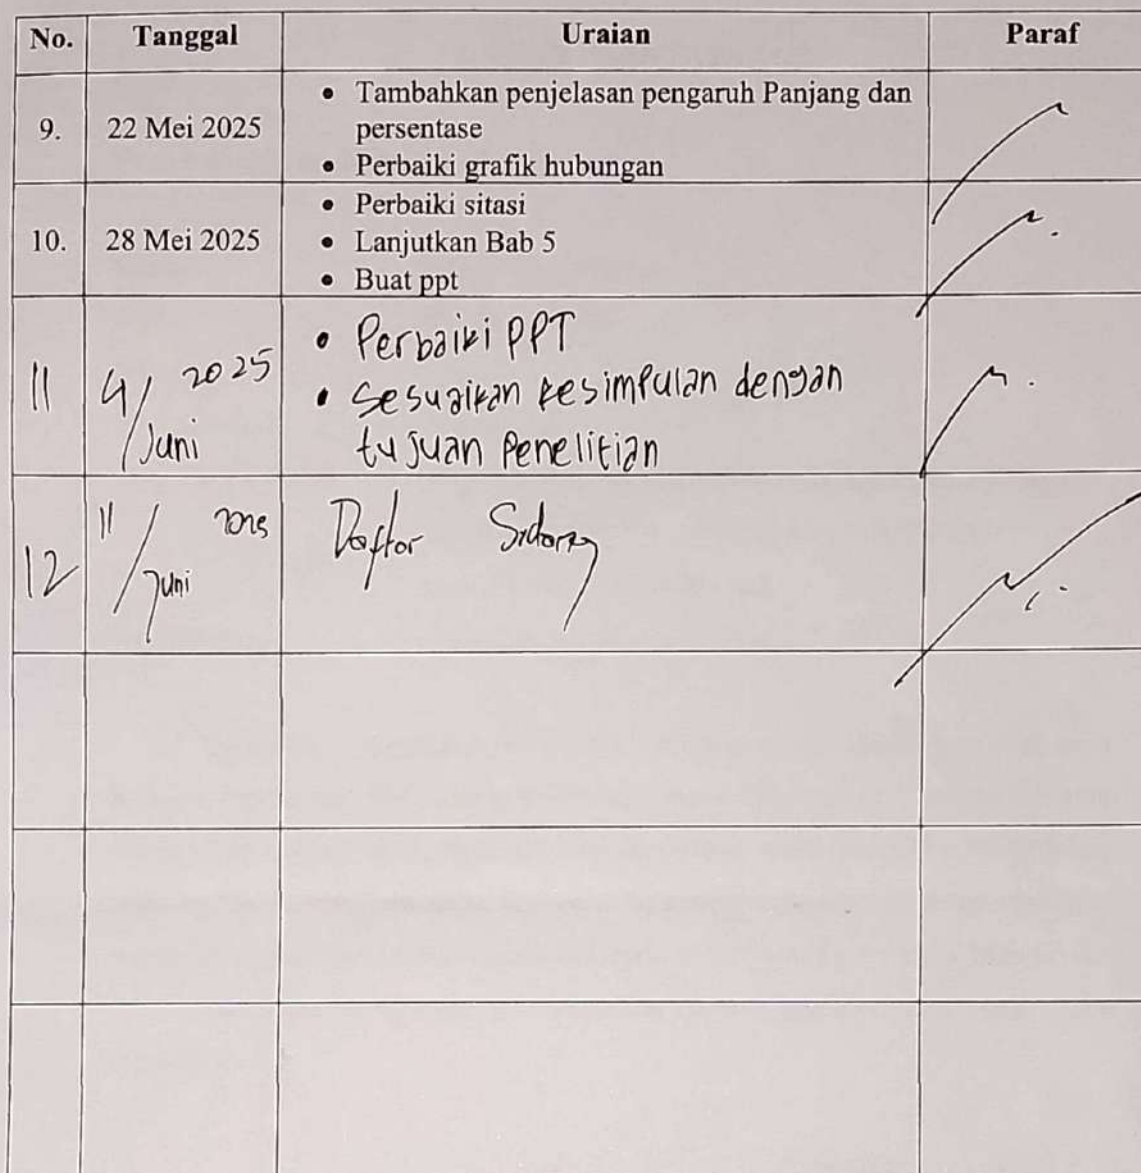 No. Tanggal Uraian Paraf
9. 22 Mei 2025 • Tambahkan penjelasan pengaruh Panjang dan
persentase
• Perbaiki grafik hubungan
10. 28 Mei 2025 • Perbaiki sitasi
• Lanjutkan Bab 5
• Buat ppt
11 4/Juni 2025 • Perbaiki PPT
• Sesuaikan kesimpulan dengan
tujuan Penelitian
12 11/Juni 2025 Daftar Sidang